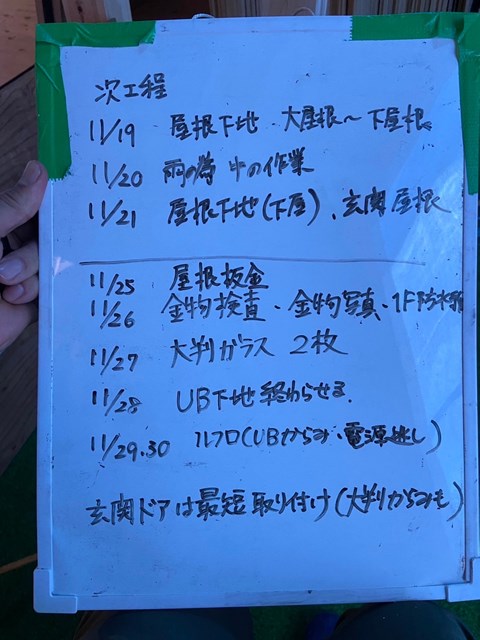 次工程
11/19 屋根下地 大屋根〜下屋根
11/20 雨の為 中の作業
11/21 屋根下地(下屋)、玄関屋根
11/25 屋根板金
11/26 金物検査・金物写真・1F防水
11/27 大判ガラス 2枚
11/28 UB下地終わらせる.
11/29.30 (UBからみ・電源逃し)
玄関ドアは最短取り付け(大判からみも)